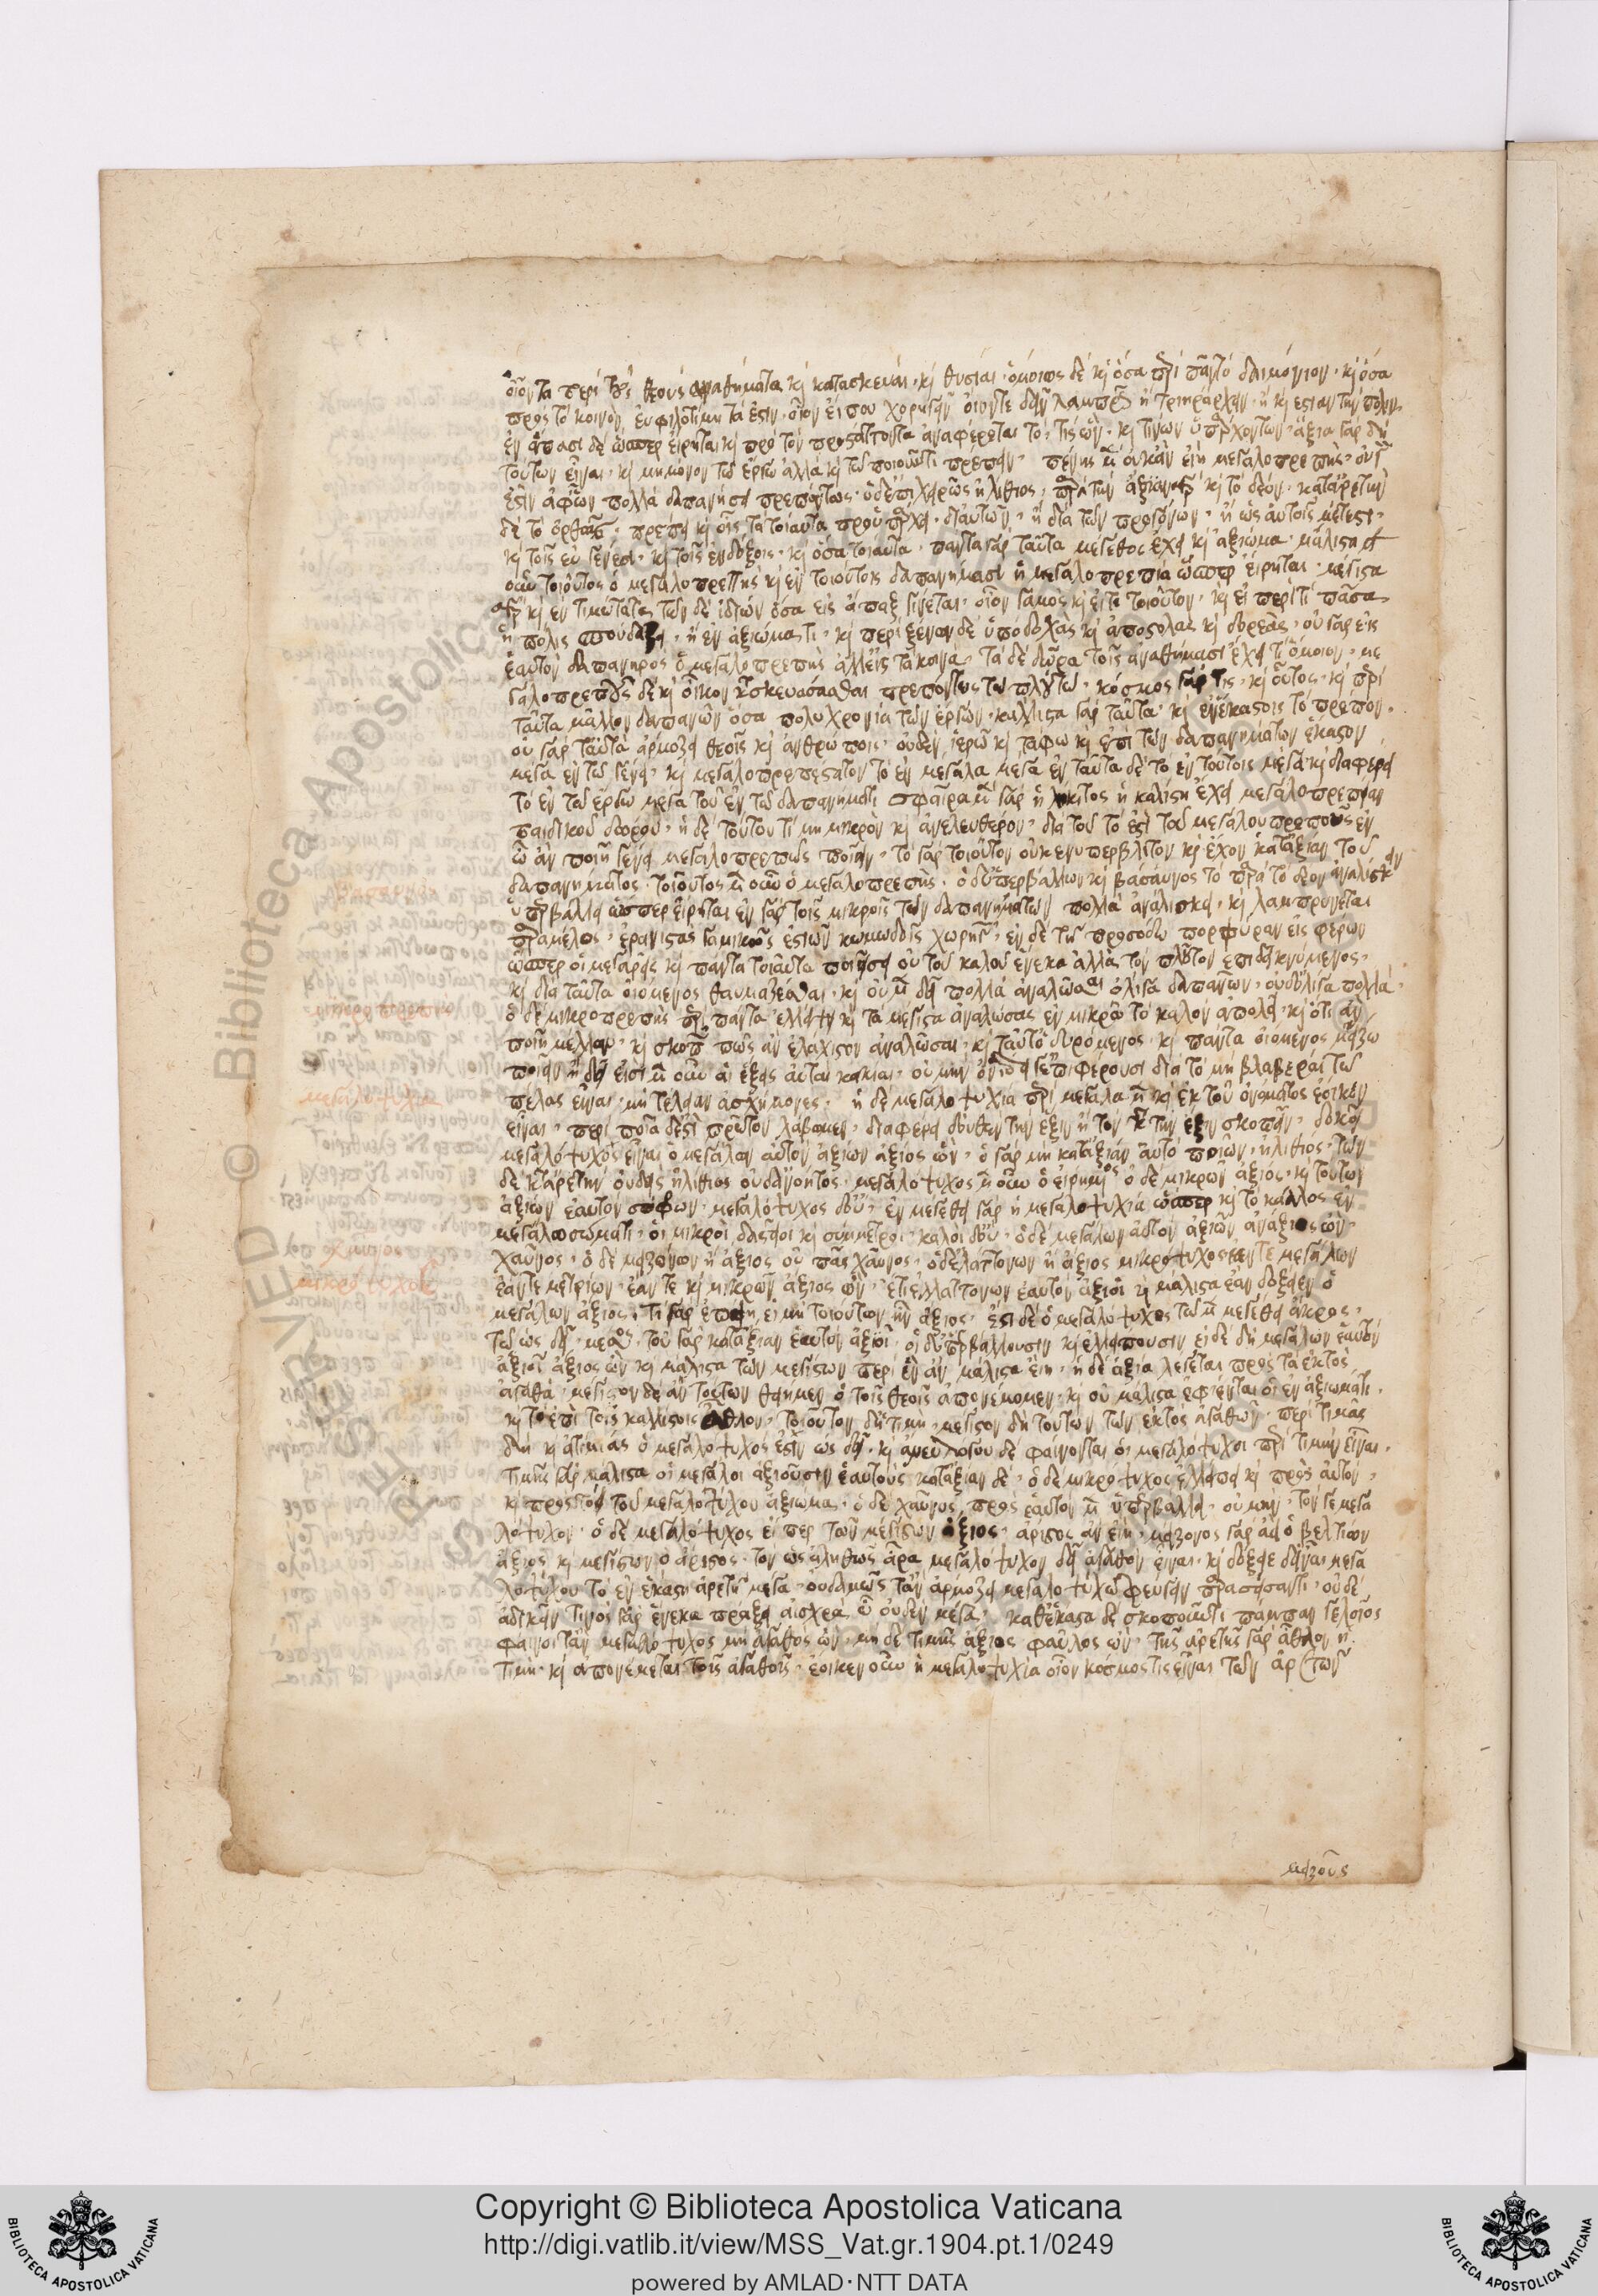 οἷον τὰ περὶ τοὺς θεοὺς ἀναθήματα καὶ κατασκευαὶ καὶ θυσίαι· ὁμοίως δὲ καὶ ὅσα περὶ πᾶν τὸ δαιμόνιον· καὶ ὅσα
πρὸς τὸ κοινὸν εὐφιλοτίμητά ἐστιν· οἷον εἴ που χορηγεῖν οἴονται δεῖν λαμπρῶς ἢ τριηραρχεῖν ἢ καὶ ἑστιᾶν τὴν πόλιν·
ἐν ἅπασι δὲ ὥσπερ εἴρηται καὶ πρὸς τὸν πράττοντα ἀναφέρεται τὸ τίς ὢν καὶ τίνων ὑπαρχόντων· ἄξια γὰρ δεῖ
τούτων εἶναι· καὶ μὴ μόνον τῷ ἔργῳ ἀλλὰ καὶ τῷ ποιοῦντι πρέπειν· πένης μὲν οὐκ ἂν εἴη μεγαλοπρεπής· οὐ γὰρ
ἔστιν ἀφ' ὧν πολλὰ δαπανήσει πρεπόντως· ὁ δ' ἐπιχειρῶν ἠλίθιος· παρὰ τὴν ἀξίαν γὰρ καὶ τὸ δέον· κατ' ἀρετὴν
δὲ τὸ ὀρθῶς· πρέπει καὶ οἷς τὰ τοιαῦτα προϋπάρχει δι' αὐτῶν· ἢ διὰ τῶν προγόνων· ἢ ὧν αὐτοῖς μέτεστι·
καὶ τοῖς εὐγενέσι· καὶ τοῖς ἐνδόξοις· καὶ ὅσα τοιαῦτα· πάντα γὰρ ταῦτα μέγεθος ἔχει καὶ ἀξίωμα· μάλιστα μὲν
οὖν τοιοῦτος ὁ μεγαλοπρεπὴς καὶ ἐν τοιούτοις δαπανήμασι ἡ μεγαλοπρέπεια ὥσπερ εἴρηται· μέγιστα
γὰρ καὶ ἐντιμότατα· τῶν δὲ ἰδίων ὅσα εἰς ἅπαξ γίνεται· οἷον γάμος καὶ εἴ τι τοιοῦτον· καὶ εἰ περί τι πᾶσα
ἡ πόλις σπουδάζει· ἢ ἐν ἀξιώματι· καὶ περὶ ξένων δὲ ὑποδοχὰς καὶ ἀποστολὰς καὶ δωρεὰς· οὐ γὰρ εἰς
ἑαυτὸν δαπανηρὸς ὁ μεγαλοπρεπὴς ἀλλ' εἰς τὰ κοινά· τὰ δὲ δῶρα τοῖς ἀναθήμασι ἔχει τι ὅμοιον· με
γαλοπρεποῦς δὲ καὶ οἶκον κατασκευάσασθαι πρεπόντως τῷ πλούτῳ· κόσμος γάρ τις καὶ οὗτος· καὶ περὶ
ταῦτα μᾶλλον δαπανᾶν ὅσα πολυχρόνια τῶν ἔργων· κάλλιστα γὰρ ταῦτα· καὶ ἐν ἑκάστοις τὸ πρέπον·
οὐ γὰρ ταὐτὰ ἁρμόζει θεοῖς καὶ ἀνθρώποις· οὐδὲν ἱερῷ καὶ τάφῳ καὶ ἐπὶ τῶν δαπανημάτων ἕκαστον
μέγα ἐν τῷ γένει· καὶ μεγαλοπρεπέστατον τὸ ἐν μεγάλῳ μέγα ἐνταῦτα δὲ τὸ ἐν τούτοις μέγα καὶ διαφέρει
τὸ ἐν τῷ ἔργῳ μέγα τοῦ ἐν τῷ δαπανήματι σφαῖρα μὲν γὰρ ἢ λήκυθος ἡ καλλίστη ἔχει μεγαλοπρέπειαν
παιδικοῦ δώρου· ἡ δὲ τούτου τιμὴ μικρὸν καὶ ἀνελεύθερον· διὰ τοῦτό ἐστι τοῦ μεγαλοπρεποῦς ἐν
ᾧ ἂν ποιῇ γένει μεγαλοπρεπῶς ποιεῖν· τὸ γὰρ τοιοῦτον οὐκ εὐυπέρβλητον καὶ ἔχον κατ' ἀξίαν τοῦ
δαπανήματος· τοιοῦτος μὲν οὖν ὁ μεγαλοπρεπής· ὁ δ' ὑπερβάλλων καὶ βάναυσος τῷ παρὰ τὸ δέον ἀναλίσκειν
ὑπερβάλλει ὥσπερ εἴρηται ἐν γὰρ τοῖς μικροῖς τῶν δαπανημάτων πολλὰ ἀναλίσκει· καὶ λαμπρύνεται
παρὰ μέλος· ἐρανιστὰς γαμικῶς ἑστιῶν κωμῳδοῖς χωρηγῶν ἐν δὲ τῇ προσόδῳ πορφύραν εἰσφέρων
ὥσπερ οἱ μεγαρεῖς καὶ πάντα τοιαῦτα ποιήσει οὐ τοῦ καλοῦ ἕνεκα ἀλλὰ τὸν πλοῦτον ἐπιδεικνύμενος·
καὶ διὰ ταῦτα οἰόμενος θαυμάζεσθαι· καὶ οὗ μὲν δεῖ πολλὰ ἀναλῶσαι ὀλίγα δαπανῶν· οὗ δ' ὀλίγα πολλά·
ὁ δὲ μικροπρεπὴς περὶ πάντα ἐλλείψει καὶ τὰ μέγιστα ἀναλώσας ἐν μικρῷ τὸ καλὸν ἀπολεῖ· καὶ ὅτι ἂν
ποιῇ μέλλων· καὶ σκοπῶν πῶς ἂν ἐλάχιστον ἀναλώσαι· καὶ ταῦτ' ὀδυρόμενος· καὶ πάντα οἰόμενος μείζω
ποιεῖν ἢ δεῖ εἰσὶ μὲν οὖν αἱ ἕξεις αὗται κακίαι· οὐ μὴν ὀνείδη γ' ἐπιφέρουσι διὰ τὸ μὴ βλαβεραὶ τῷ
πέλας εἶναι· μὴ τε λίαν ἀσχήμονες· ἡ δὲ μεγαλοψυχία περὶ μεγάλα μὲν καὶ ἐκ τοῦ ὀνόματος ἔοικεν
μεγαλοψυχία
εἶναι· περὶ ποῖα δ' ἐστὶ πρῶτον λάβωμεν· διαφέρει δ' οὐθὲν τὴν ἕξιν ἢ τὸν κατὰ τὴν ἕξιν σκοπεῖν· δοκεῖ
μεγαλόψυχος εἶναι ὁ μεγάλων αὑτὸν ἀξιῶν ἄξιος ὤν· ὁ γὰρ μὴ κατ' ἀξίαν αὐτὸ ποιῶν· ἠλίθιος· τῶν
δὲ κατ' ἀρετὴν οὐδεὶς ἠλίθιος οὐδ' ἀνόητος· μεγαλόψυχος μὲν οὖν ὁ εἰρημένος ὁ δὲ μικρῶν ἄξιος· καὶ τούτων
ἀξιῶν ἑαυτὸν σώφρων· μεγαλόψυχος δ' οὔ· ἐν μεγέθει γὰρ ἡ μεγαλοψυχία ὥσπερ καὶ τὸ κάλλος ἐν
μεγάλῳ σώματι· οἱ μικροὶ δ' ἀστεῖοι καὶ σύμμετροι· καλοὶ δ' οὔ· ὁ δὲ μεγάλων αὑτὸν ἀξιῶν ἀνάξιος ὤν·
χαῦνος· ὁ δὲ μειζόνων ἢ ἄξιος οὐ πᾶς χαῦνος· ὁ δ' ἐλαττόνων ἢ ἄξιος μικρόψυχος ἐάν τε μεγάλων
χαῦνος
ἐάν τε μετρίων· ἐάν τε καὶ μικρῶν ἄξιος ὤν· ἔτι ἐλαττόνων ἑαυτὸν ἀξιοῖ καὶ μάλιστα ἂν δόξειεν ὁ
μεγάλων ἄξιος· τί γὰρ ἐποίει εἰ μὴ τοιούτων ἦν ἄξιος· ἔστι δὲ ὁ μεγαλόψυχος τῷ μὲν μεγέθει ἄκρος·
τῷ ὡς δεῖ· μέσος· τοῦ γὰρ κατ' ἀξίαν ἑαυτὸν ἀξιοῖ· οἱ δ' ὑπερβάλλουσιν καὶ ἐλλείπουσιν εἰ δὲ δὴ μεγάλων ἑαυτὸν
ἀξιοῖ ἄξιος ὢν καὶ μάλιστα τῶν μεγίστων περὶ ἓν ἂν μάλιστα εἴη· ἡ δὲ ἀξία λέγεται πρὸς τὰ ἐκτὸς
ἀγαθά· μέγιστον δὲ ἂν τούτων θείημεν ὃ τοῖς θεοῖς ἀπονέμομεν· καὶ οὗ μάλιστα ἐφίενται οἱ ἐν ἀξιώματι·
καὶ τὸ ἐπὶ τοῖς καλλίστοις ἆθλον· τοιοῦτον δ' ἡ τιμή· μέγιστον δὴ τούτων τῶν ἐκτὸς ἀγαθῶν· περὶ τιμὰς
δὴ καὶ ἀτιμίας ὁ μεγαλόψυχός ἐστιν ὡς δεῖ· καὶ ἄνευ λόγου δὲ φαίνονται οἱ μεγαλόψυχοι περὶ τιμὴν εἶναι·
τιμῆς γὰρ μάλιστα οἱ μεγάλοι ἀξιοῦσιν ἑαυτούς κατ' ἀξίαν δέ· ὁ δὲ μικρόψυχος ἐλλείπει καὶ πρὸς αὑτὸν·
καὶ πρὸς τὸ τοῦ μεγαλοψύχου ἀξίωμα· ὁ δὲ χαῦνος πρὸς ἑαυτὸν μὲν ὑπερβάλλει· οὐ μὴν τόν γε μεγα
λόψυχον· ὁ δὲ μεγαλόψυχος εἴπερ τῶν μεγίστων ἄξιος· ἄριστος ἂν εἴη· μείζονος γὰρ ἀεὶ ὁ βελτίων
ἄξιος καὶ μεγίστων ὁ ἄριστος· τὸν ὡς ἀληθῶς ἄρα μεγαλόψυχον δεῖ ἀγαθὸν εἶναι· καὶ δόξειε δ' εἶναι μεγα
λοψύχου τὸ ἐν ἑκάστῃ ἀρετῇ μέγα· οὐδαμῶς τ' ἂν ἁρμόζει μεγαλοψύχῳ φεύγειν παρασείσαντι· οὐδὲ
ἀδικεῖν τίνος γὰρ ἕνεκα πράξει αἰσχρὰ ᾧ οὐδὲν μέγα· καθ' ἕκαστα δὲ σκοποῦντι πάμπαν γελοῖος
φαίνοιτ' ἂν μεγαλόψυχος μὴ ἀγαθὸς ὤν· μὴ δὲ τιμῆς ἄξιος φαῦλος ὤν· τῆς ἀρετῆς γὰρ ἆθλον ἡ
τιμή· καὶ ἀπονέμεται τοῖς ἀγαθοῖς· ἔοικεν οὖν ἡ μεγαλοψυχία οἷον κόσμος τις εἶναι τῶν ἀρετῶν
μείζους
Copyright © Biblioteca Apostolica Vaticana
http://digi.vatlib.it/view/MSS_Vat.gr.1904.pt.1/0249
powered by AMLAD·NTT DATA
BIBLIOTECA APOSTOLICA VATICANA
BIBLIOTECA APOSTOLICA VATICANA